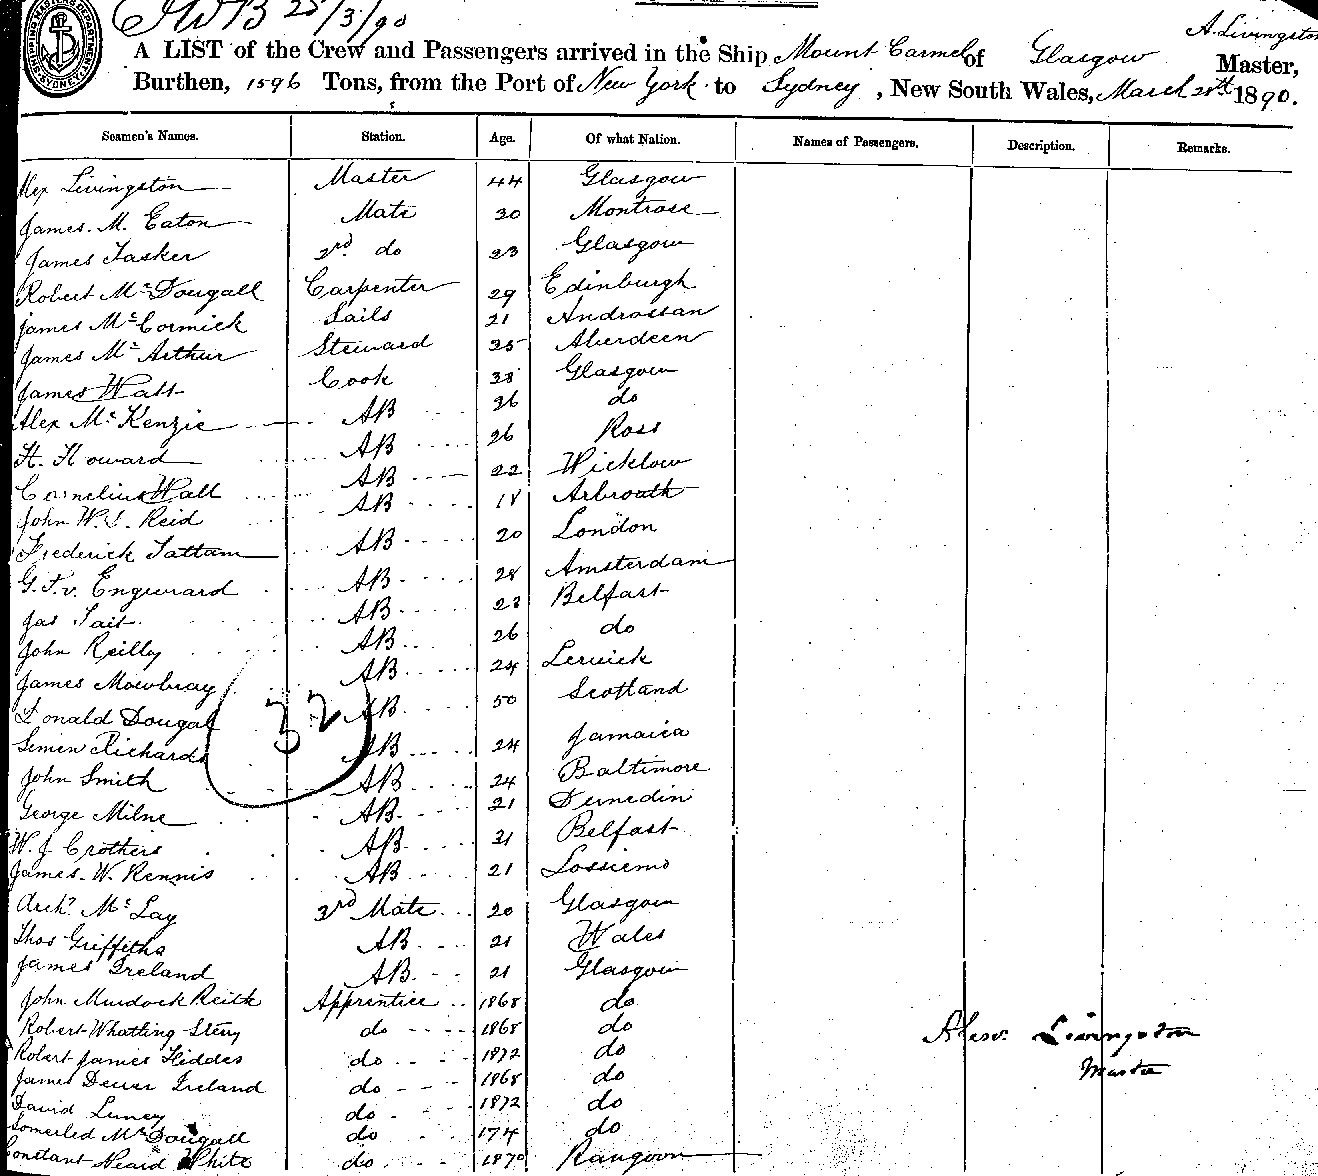 JWB 25/3/90
SHIPPING MASTERS DEPARTMENT SYDNEY
A. Livingston
A LIST of the Crew and Passengers arrived in the Ship Mount Carmel of Glasgow Master,
Burthen, 1596 Tons, from the Port of New York to Sydney, New South Wales, March 1890.
Seamen's Names. Station. Age. Of what Nation. Names of Passengers. Description. Remarks.
Alex Livingston Master 44 Glasgow
James. M. Eaton Mate 30 Montrose
James Tasker 2nd. do 23 Glasgow
Robert McDougall Carpenter 29 Edinburgh
James McCormick Sails 21 Androssan
James McArthur Steward 35 Aberdeen
James Watt Cook 38 Glasgow
Alex McKenzie AB 26 do
H. Howard AB 26 Ross
Cornelius Wall AB 22 Wicklow
John W. S. Reid AB 18 Arbroath
Frederick Tattam AB 20 London
G. T. v. Enguard AB 28 Amsterdam
Jas Tait AB 23 Belfast
John Reilly AB 26 do
James Mowbray AB 24 Lerwick
Donald Dougal AB 50 Scotland
Simon Richards AB 24 Jamaica
32
John Smith AB 24 Baltimore
George Milne AB 21 Dunedin
W. J Crothers AB 31 Belfast
James. W. Rennis AB 21 Lossiemo
Archd. McLay 3rd Mate 20 Glasgow
Thos Griffiths AB 21 Wales
James Ireland AB 21 Glasgow
John Murdock Reith Apprentice 1868 do
Robert Whatling do 1868 do
Robert James do 1872 do
James Ireland do 1868 do
David do 1872 do
Somerled McDougall do 174 do
Constant White do 1870 Rangoon
Alexr. Livingston
Master